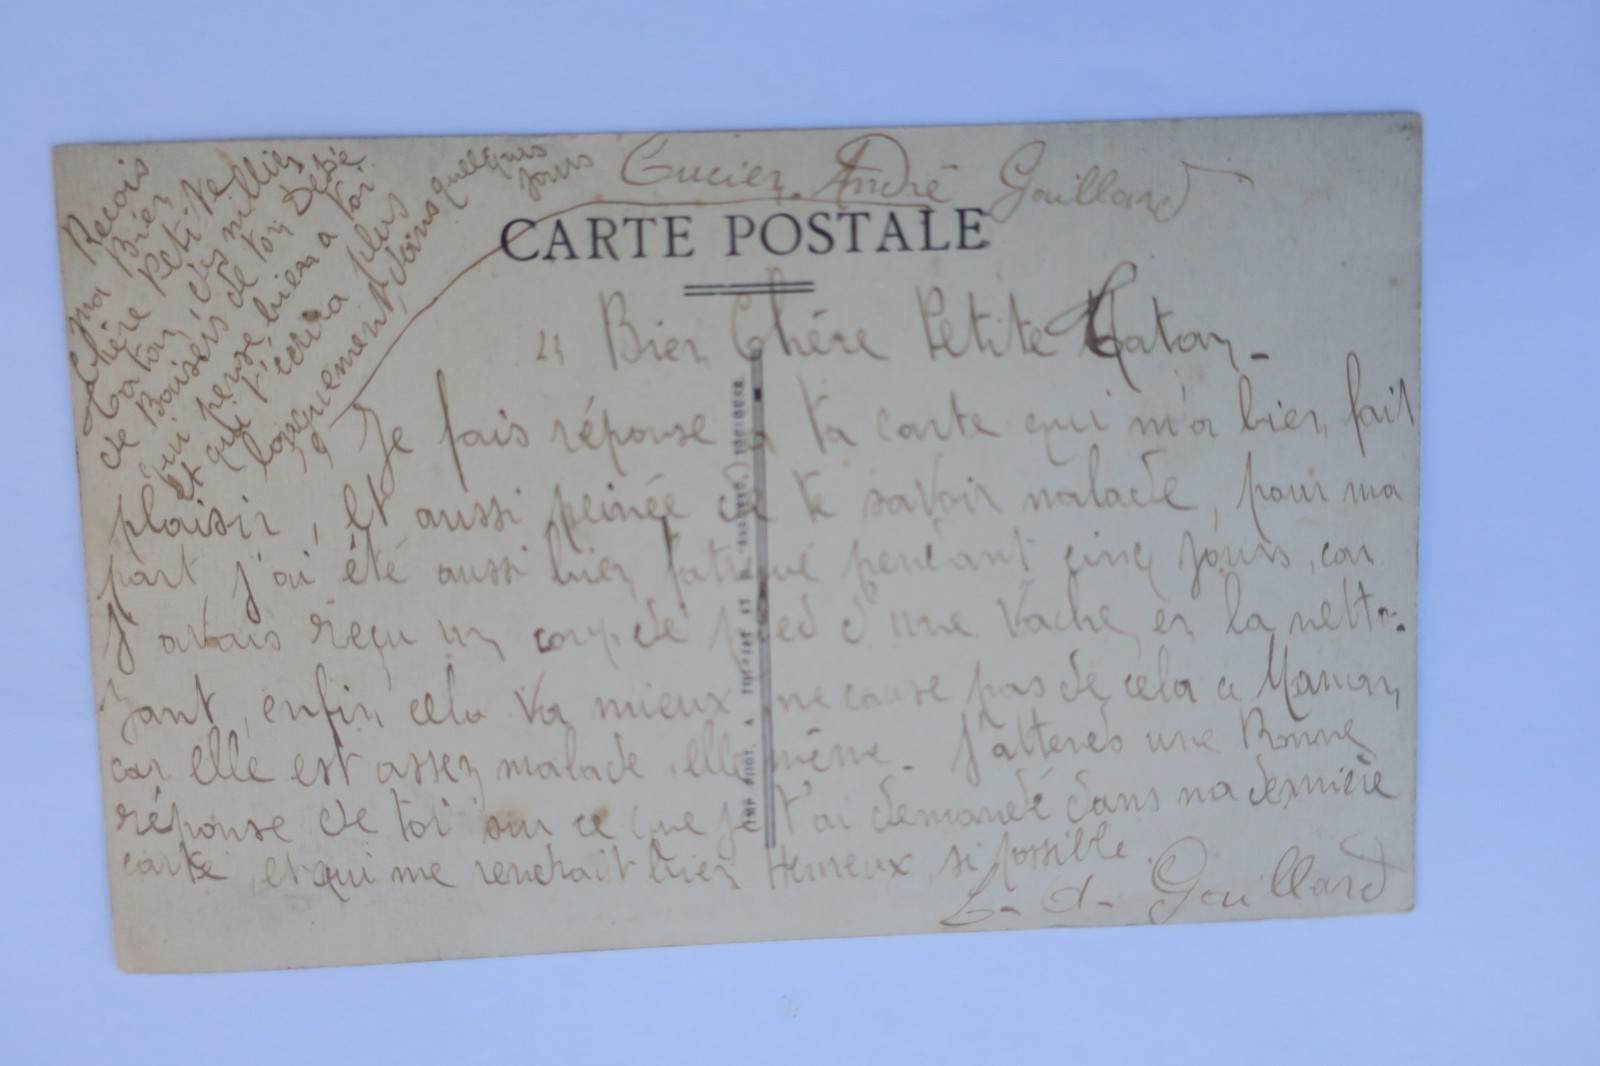 Lucien. André Gouillard
CARTE POSTALE
Bien Chère Petite Caton -
Je fais réponse a ta carte qui m'a bien fait
plaisir, et aussi peinée de te savoir malade, pour ma
part j'ai été aussi bien fatigué pendant cinq jours, car
j'avais reçu un coup de pied d'une vache en la netto-
yant, enfin cela va mieux ne cause pas de cela a Maman,
car elle est assez malade, elle même. J'attends une Bonne
réponse de toi sur ce que je t'ai demandé dans ma dernière
carte, et qui me rendrait bien Heureux, si possible.
L. A. Gouillard
Recois
ma Bien
Chère Petite
Caton, des milliers
de Baisers de ton Dédé
qui pense bien a toi
et qui t'écrira plus
longuement dans quelques
jours
IMP. PHOT. A